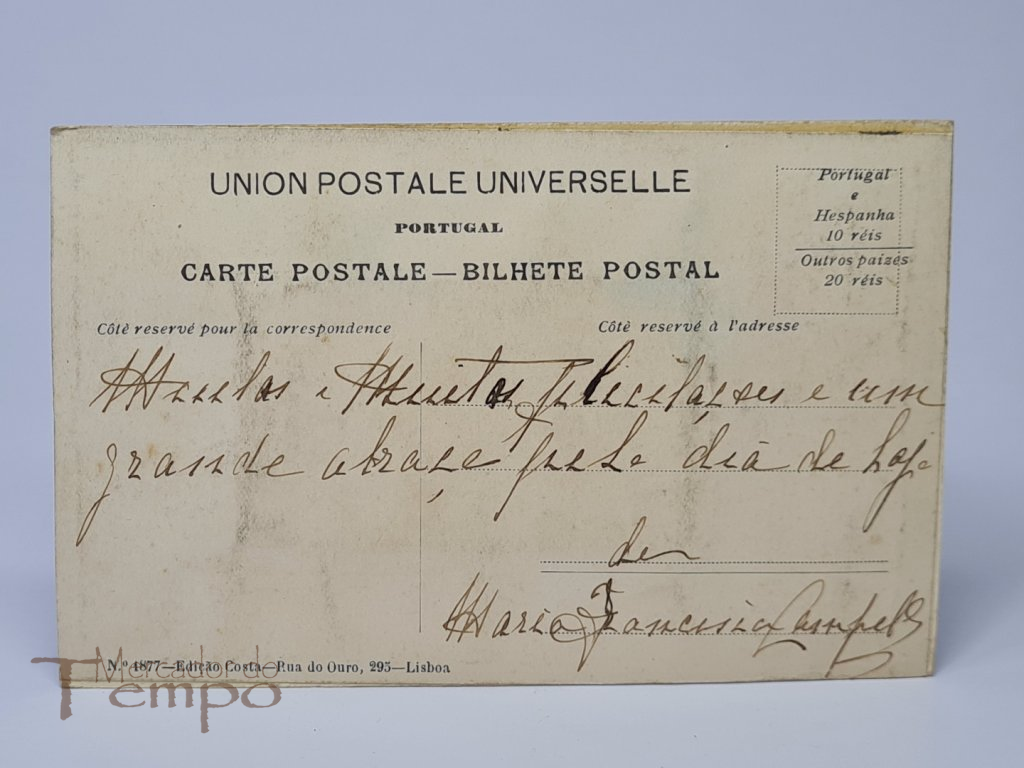 UNION POSTALE UNIVERSELLE
PORTUGAL
CARTE POSTALE — BILHETE POSTAL
Portugal
e
Hespanha
10 réis
Outros paizes
20 réis
Côtè reservé pour la correspondence
Côtè reservé à l'adresse
Muitos e Muitos felicitações e um
grande abraço pelo dia de hoje
de
Maria Francisca
N.º 1877—Edição Costa—Rua do Ouro, 295—Lisboa
Mercador do
Tempo